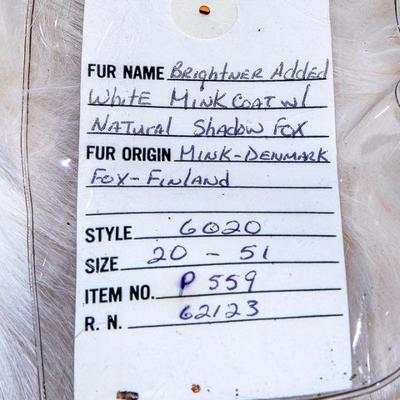 FUR NAME Brightner Added
White Mink Coat w/
Natural Shadow Fox
FUR ORIGIN Mink-Denmark
Fox-Finland
STYLE 6020
SIZE 20 - 51
ITEM NO. P 559
R. N. 62123